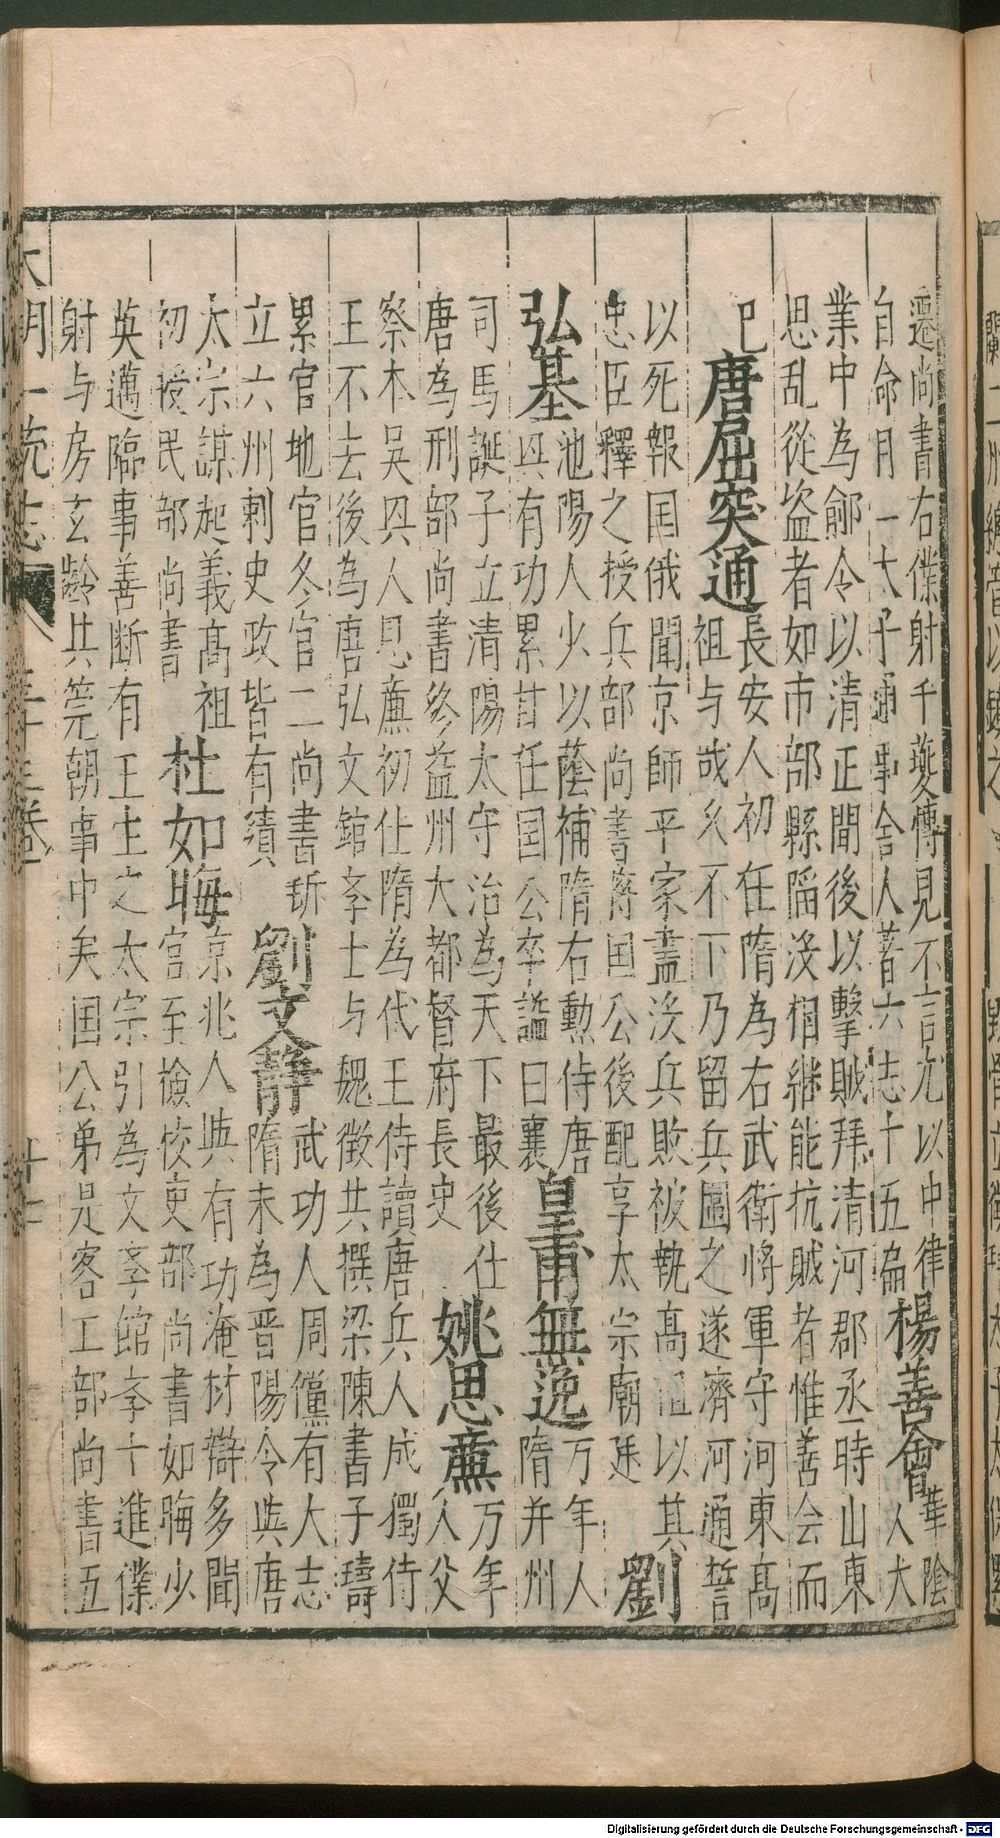 遷尚書右僕射千夔博見不言尤以中律
自命月一太子通事舍人著六志十五篇
楊善會
華陰
人大
業中為鄃令以清正聞後以擊賊拜清河郡丞時山東
思乱從盗者如市部縣陷沒相継能抗賊者惟善会而
已
唐屈突通
長安人初任隋為右武衛將軍守河東髙
祖与战乆不下乃留兵圖之遂濟河通誓
以死報囯俄聞京師平家盡沒兵敗被執髙祖以其
忠臣釋之授兵部尚書蒋囯公後配享太宗廟廷
劉
弘基
池陽人少以蔭補隋右勲侍唐
㒷有功累甘任囯公卒諡曰襄
皇甫無逸
万年人
隋并州
司馬誕子立清陽太守治為天下最後仕
唐為刑部尚書終益州大都督府長吏
姚思㢘
万年
人父
察本吳㒷人思㢘初仕隋為代王侍讀唐兵人成獨侍
王不去後為唐弘文館孝士与魏徵共撰梁陳書子璹
累官地官冬官二尚書㪿
立六州刺史政皆有績
劉文静
武功人周儻有大志
隋末為晋陽令㒷唐
太宗謀起義髙祖
初授民部尚書
杜如晦
京兆人㒷有功淹材辯多聞
官至撿校吏部尚書如晦少
英邁臨事善断有王生之太宗引為文孝館孝士進僕
射与房玄齡共筦朝事中矣囯公弟是客工部尚書五
大明一統志 三十三卷 十二
Digitalisierung gefördert durch die Deutsche Forschungsgemeinschaft - DFG